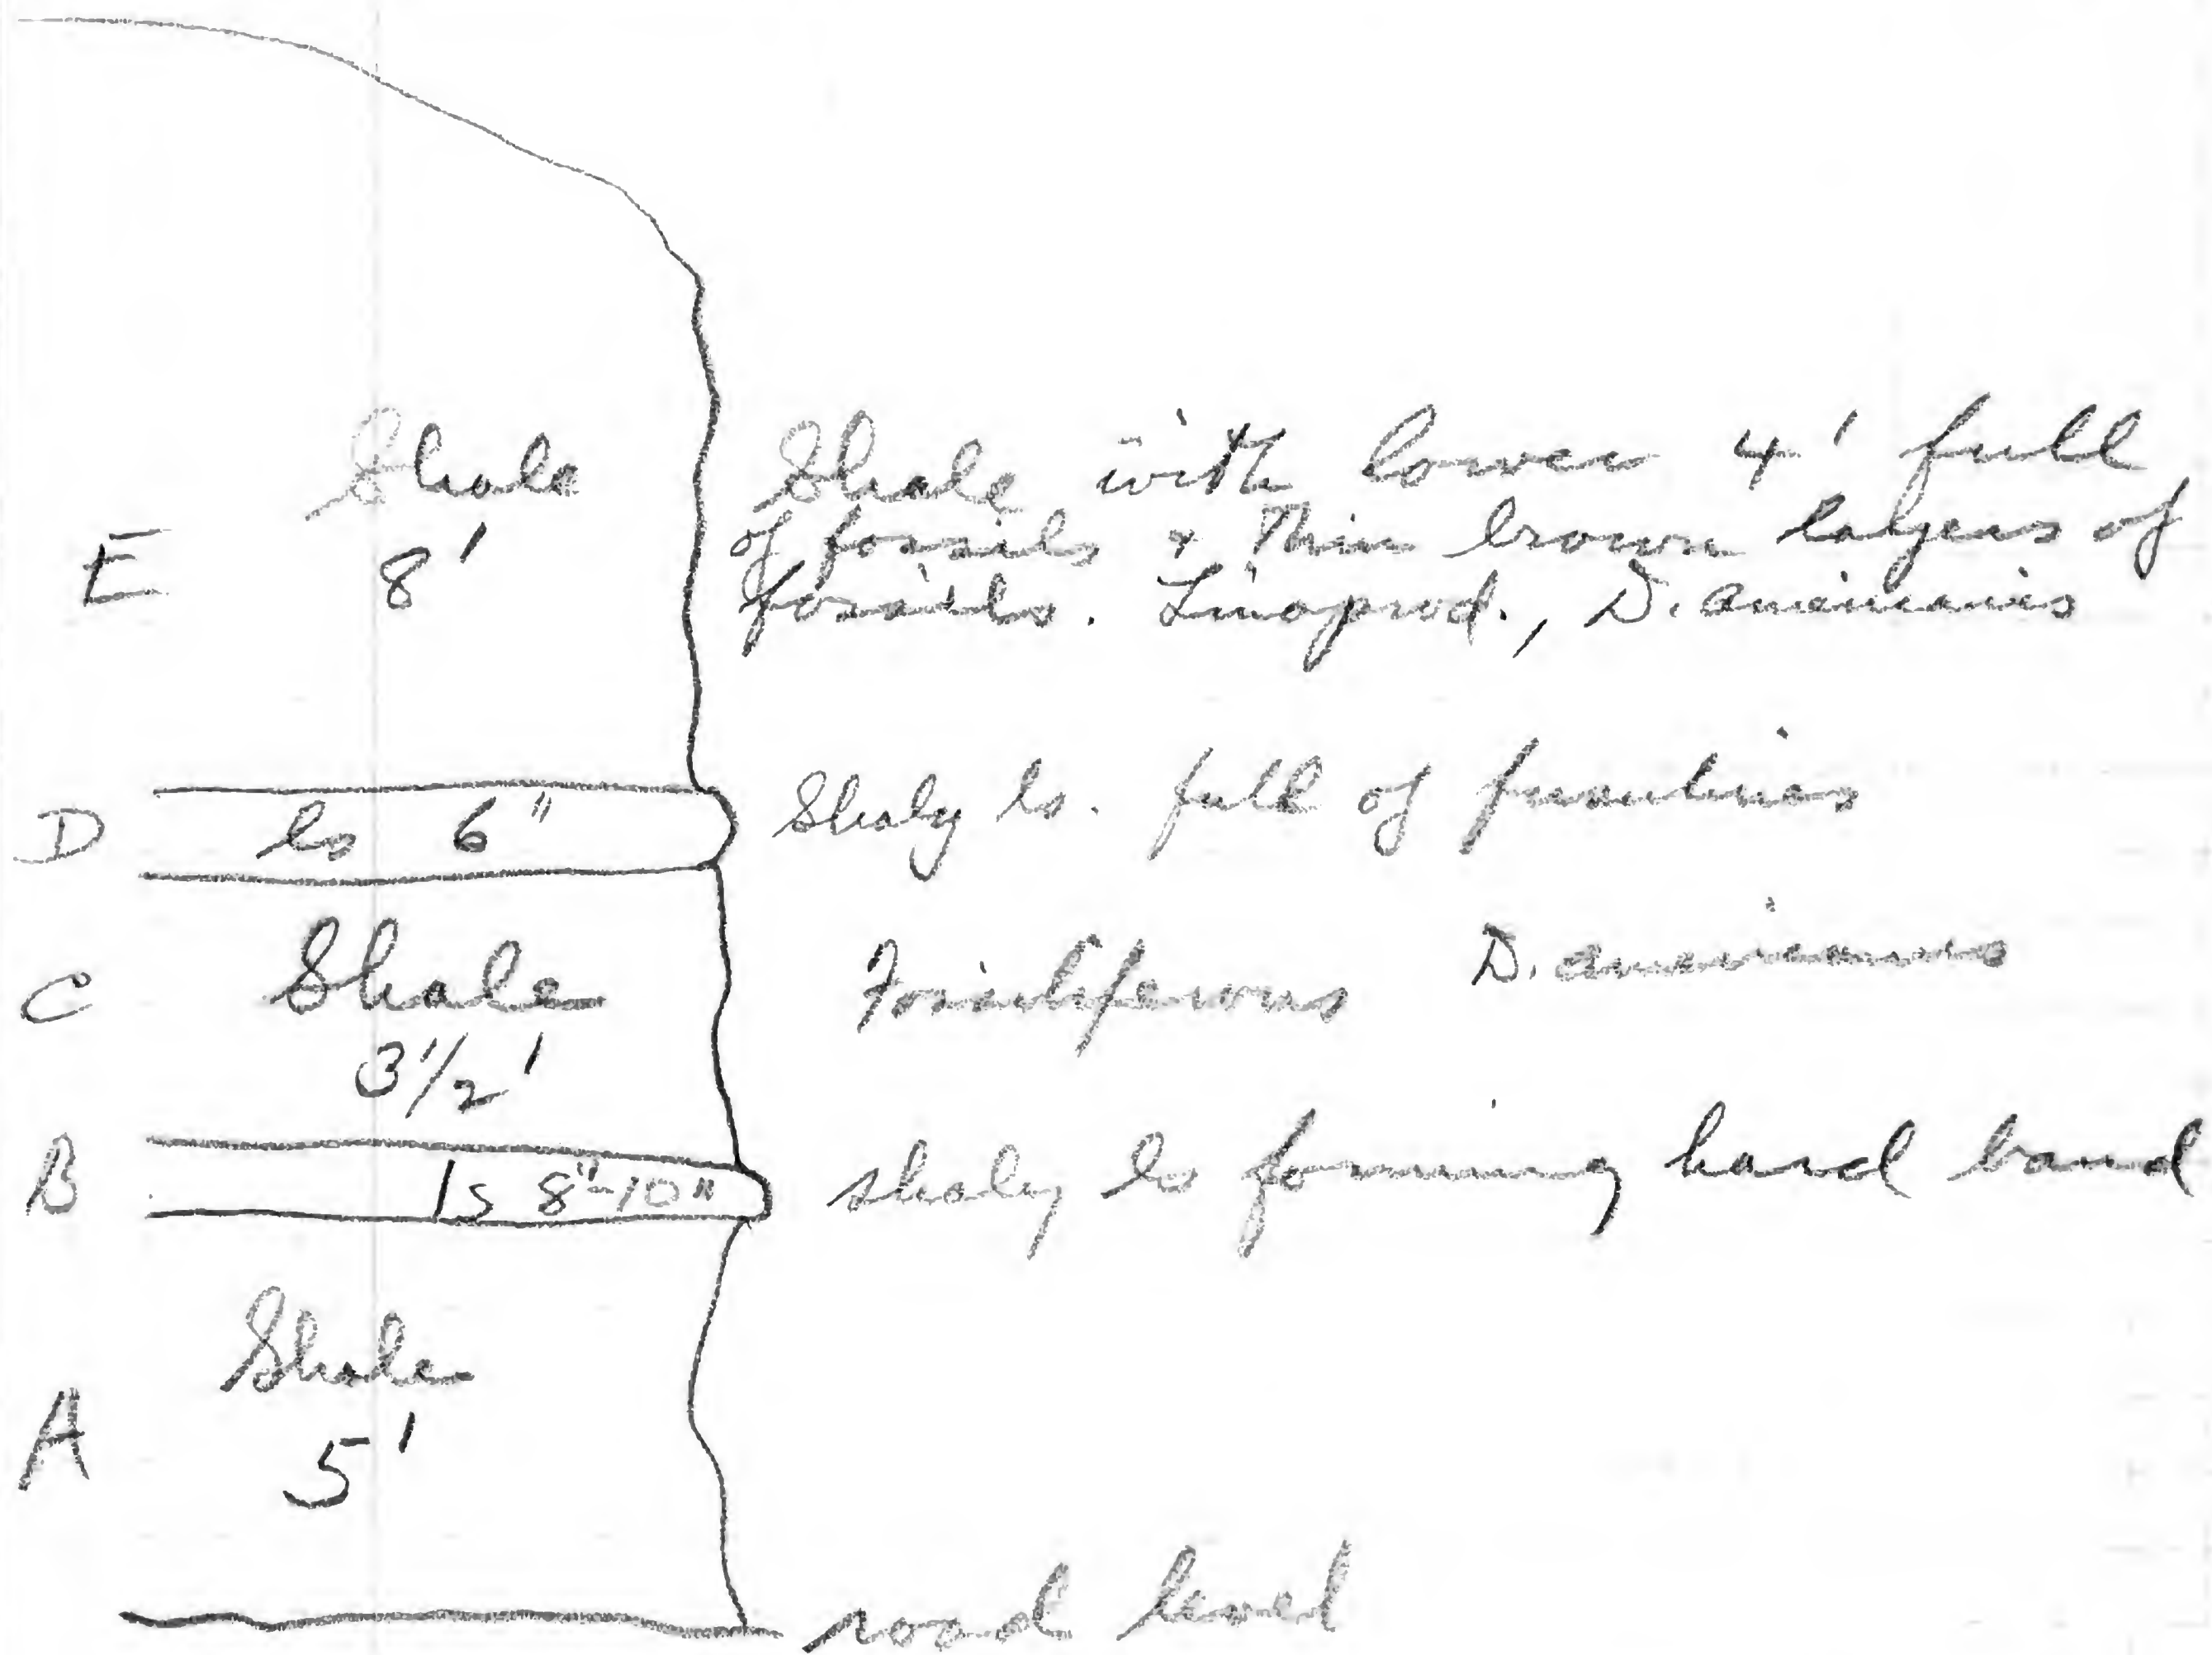 Shale
E 8'
Shale with lower 4' full
of fossils & thin brown layers of
fossils. Linoprod., D. americanus
D ls 6" Shaly ls. full of fusulinas
C Shale Fossiliferous D. americanus
3 1/2'
B ls 8"-10" shaly ls forming hard band
Shale
A 5'
road level